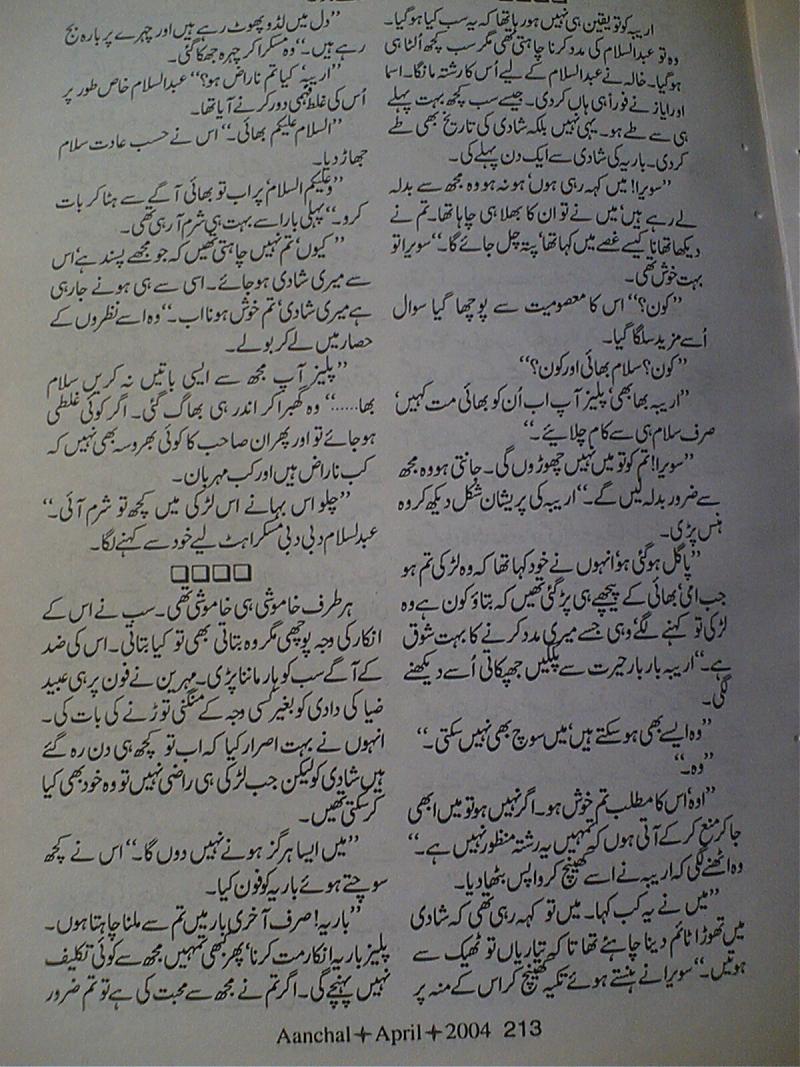 اریبہ کو تو یقین ہی نہیں ہو رہا تھا کہ یہ سب کیا ہو گیا۔
وہ تو عبدالسلام کی مدد کرنا چاہتی تھی مگر سب کچھ اُلٹا ہی
ہو گیا۔ خالہ نے عبدالسلام کے لیے اُس کا رشتہ مانگا۔ اسما
اور ایاز نے فوراً ہی ہاں کر دی۔ جیسے سب کچھ بہت پہلے
ہی سے طے ہو۔ یہی نہیں بلکہ شادی کی تاریخ بھی طے
کر دی۔ باریہ کی شادی سے ایک دن پہلے کی۔
”سویرا! میں کہہ رہی ہوں‘ ہو نہ ہو وہ مجھ سے بدلہ
لے رہے ہیں‘ میں نے تو ان کا بھلا ہی چاہا تھا۔ تم نے
دیکھا تھا نا کیسے غصے میں کہا تھا‘ پتہ چل جائے گا۔“ سویرا تو
بہت خوش تھی۔
”کون؟“ اس کا معصومیت سے پوچھا گیا سوال
اُسے مزید سلگا گیا۔
”کون؟ سلام بھائی اور کون؟“
”اریبہ بھابھی‘ پلیز آپ اب اُن کو بھائی مت کہیں‘
صرف سلام ہی سے کام چلائیے۔“
”سویرا! تم کو تو میں نہیں چھوڑوں گی۔ جانتی ہو وہ مجھ
سے ضرور بدلہ لیں گے۔“ اریبہ کی پریشان شکل دیکھ کر وہ
ہنس پڑی۔
”پاگل ہو گئی ہو‘ انہوں نے خود کہا تھا کہ وہ لڑکی تم ہو
جب امی‘ بھائی کے پیچھے ہی پڑ گئی تھیں کہ بتاؤ کون ہے وہ
لڑکی تو کہنے لگے‘ وہی جسے میری مدد کرنے کا بہت شوق
ہے۔“ اریبہ بار بار حیرت سے پلکیں جھپکاتی اُسے دیکھنے
لگی۔
”وہ ایسے بھی ہو سکتے ہیں‘ میں سوچ بھی نہیں سکتی۔“
”وہ۔“
”اوہ‘ اس کا مطلب تم خوش ہو۔ اگر نہیں ہو تو میں ابھی
جا کر منع کر کے آتی ہوں کہ تمہیں یہ رشتہ منظور نہیں ہے۔“
وہ اٹھنے لگی کہ اریبہ نے اسے کھینچ کر واپس بٹھا دیا۔
”میں نے یہ کب کہا۔ میں تو کہہ رہی تھی کہ شادی
میں تھوڑا ٹائم دینا چاہئے تھا تاکہ تیاریاں تو ٹھیک سے
ہوتیں۔“ سویرا نے ہنستے ہوئے تکیہ کھینچ کر اس کے منہ پر
”دل میں لڈو پھوٹ رہے ہیں اور چہرے پر بارہ بج
رہے ہیں۔“ وہ مسکرا کر چہرہ جھکا گئی۔
”اریبہ‘ کیا تم ناراض ہو؟“ عبدالسلام خاص طور پر
اُس کی غلط فہمی دور کرنے آیا تھا۔
”السلام علیکم بھائی۔“ اس نے حسب عادت سلام
جھاڑ دیا۔
”وعلیکم السلام‘ پر اب تو بھائی آگے سے ہٹا کر بات
کرو۔“ پہلی بار اسے بہت ہی شرم آ رہی تھی۔
”کیوں‘ تم نہیں چاہتی تھیں کہ جو مجھے پسند ہے‘ اس
سے میری شادی ہو جائے۔ اسی سے ہی ہونے جا رہی
ہے میری شادی‘ تم خوش ہو نا اب۔“ وہ اسے نظروں کے
حصار میں لے کر بولے۔
”پلیز آپ مجھ سے ایسی باتیں نہ کریں سلام
بھا.....“ وہ گھبرا کر اندر ہی بھاگ گئی۔ اگر کوئی غلطی
ہو جائے تو اور پھر ان صاحب کا کوئی بھروسہ بھی نہیں کہ
کب ناراض ہیں اور کب مہربان۔
”چلو اس بہانے اس لڑکی میں کچھ تو شرم آئی۔“
عبدالسلام دبی دبی مسکراہٹ لیے خود سے کہنے لگا۔
❑❑❑❑
ہر طرف خاموشی ہی خاموشی تھی۔ سب نے اس کے
انکار کی وجہ پوچھی مگر وہ بتاتی بھی تو کیا بتاتی۔ اس کی ضد
کے آگے سب کو ہار ماننا پڑی۔ مہرین نے فون پر ہی عبید
ضیا کی دادی کو بغیر کسی وجہ کے منگنی توڑنے کی بات کی۔
انہوں نے بہت اصرار کیا کہ اب تو کچھ ہی دن رہ گئے
ہیں شادی کو لیکن جب لڑکی ہی راضی نہیں تو وہ خود بھی کیا
کر سکتی تھیں۔
”میں ایسا ہرگز ہونے نہیں دوں گا۔“ اس نے کچھ
سوچتے ہوئے باریہ کو فون کیا۔
”باریہ! صرف آخری بار میں تم سے ملنا چاہتا ہوں۔
پلیز باریہ انکار مت کرنا‘ پھر کبھی تمہیں مجھ سے کوئی تکلیف
نہیں پہنچے گی۔ اگر تم نے مجھ سے محبت کی ہے تو تم ضرور
Aanchal✦April✦2004 213